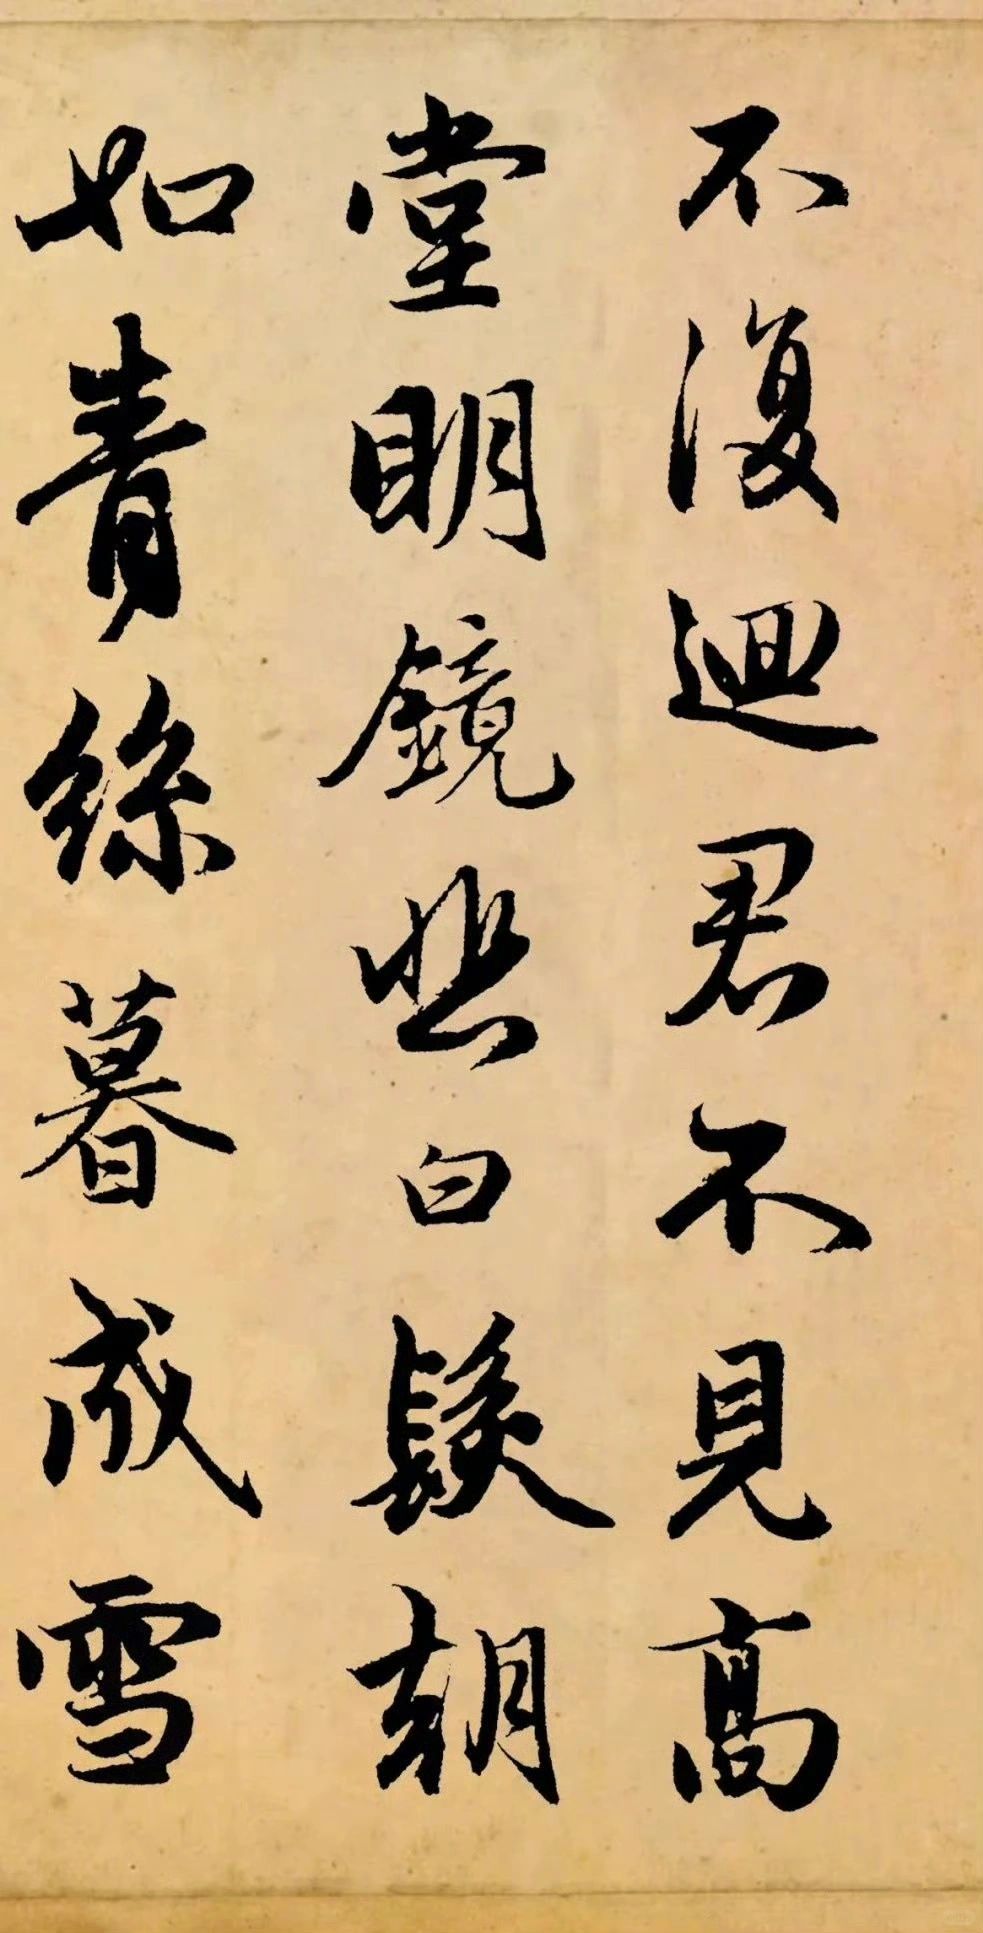 不復迴君不見高
堂明鏡悲白髮朝
如青絲暮成雪